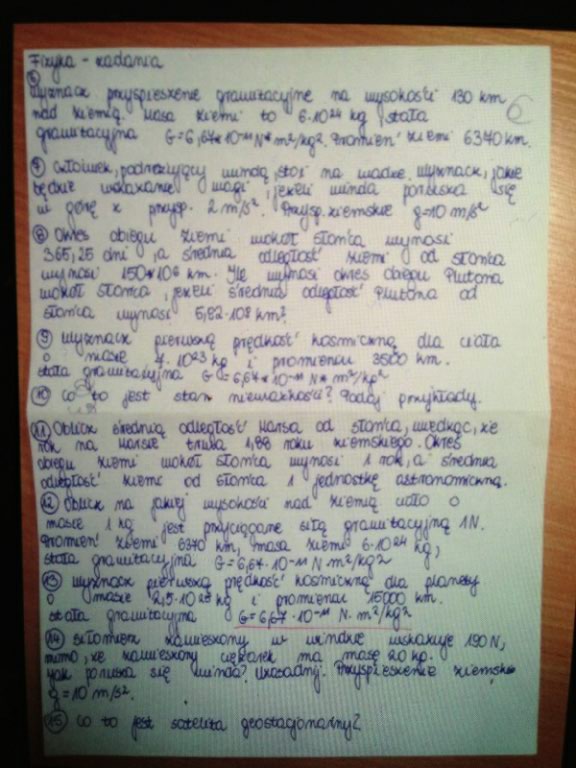 Fizyka - zadania
6
Wyznacz przyspieszenie grawitacyjne na wysokości 130 km
nad ziemią. Masa ziemi to 6·10²⁴ kg, stała
grawitacyjna G=6,67*10⁻¹¹ N*m²/kg². Promień ziemi 6370 km.
⑦ Człowiek, podróżujący windą, stoi na wadze. Wyznacz, jakie
będzie wskazanie wagi, jeżeli winda porusza się
w górę z przysp. 2 m/s². Przysp. ziemskie g=10 m/s²
⑧ Okres obiegu ziemi wokół słońca wynosi
365,25 dni, a średnia odległość ziemi od słońca
wynosi 150*10⁶ km. Ile wynosi okres obiegu Plutona
wokół słońca, jeżeli średnia odległość Plutona od
słońca wynosi 5,92·10⁸ km?
⑨ Wyznacz pierwszą prędkość kosmiczną dla ciała
o masie 7·10²³ kg i promieniu 3500 km.
stała grawitacyjna G=6,67*10⁻¹¹ N*m²/kg²
⑩ Co to jest stan nieważkości? Podaj przykłady.
⑪ Oblicz średnią odległość Marsa od słońca, wiedząc, że
rok na Marsie trwa 1,88 roku ziemskiego. Okres
obiegu ziemi wokół słońca wynosi 1 rok, a średnia
odległość ziemi od słońca 1 jednostkę astronomiczną.
⑫ Oblicz na jakiej wysokości nad ziemią ciało o
masie 1 kg jest przyciągane siłą grawitacyjną 1N.
Promień ziemi 6370 km, masa ziemi 6·10²⁴ kg,
stała grawitacyjna G=6,67·10⁻¹¹ N m²/kg²
⑬ Wyznacz pierwszą prędkość kosmiczną dla planety
o masie 2,5·10²⁵ kg i promieniu 15000 km.
stała grawitacyjna G=6,67·10⁻¹¹ N·m²/kg²
⑭ Siłomierz zawieszony w windzie wskazuje 190N,
mimo, że zawieszony ciężarek ma masę 20 kg.
Jak porusza się winda? Uzasadnij. Przyspieszenie ziemskie
g=10 m/s².
⑮ Co to jest satelita geostacjonarny?